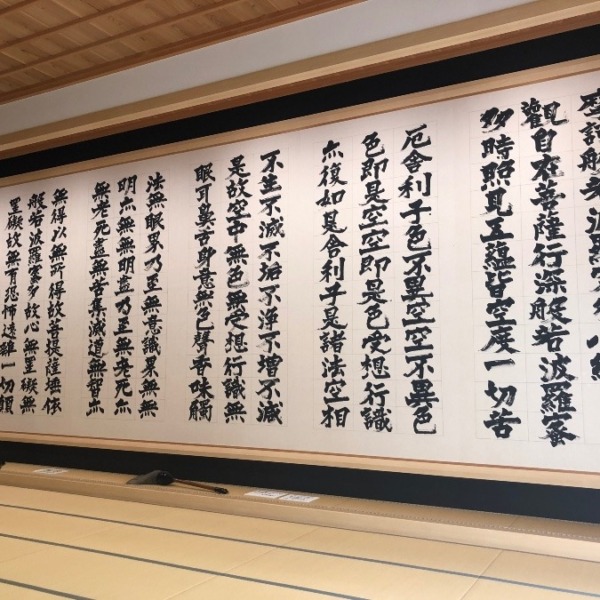 摩訶般若波羅蜜多心經
觀自在菩薩行深般若波羅蜜
多時照見五蘊皆空度一切苦
厄舍利子色不異空空不異色
色即是空空即是色受想行識
亦復如是舍利子是諸法空相
不生不滅不垢不淨不增不減
是故空中無色無受想行識無
眼耳鼻舌身意無色聲香味觸
法無眼界乃至無意識界無無
明亦無無明盡乃至無老死亦
無老死盡無苦集滅道無智亦
無得以無所得故菩提薩埵依
般若波羅蜜多故心無罣礙無
罣礙故無有恐怖遠離一切顛